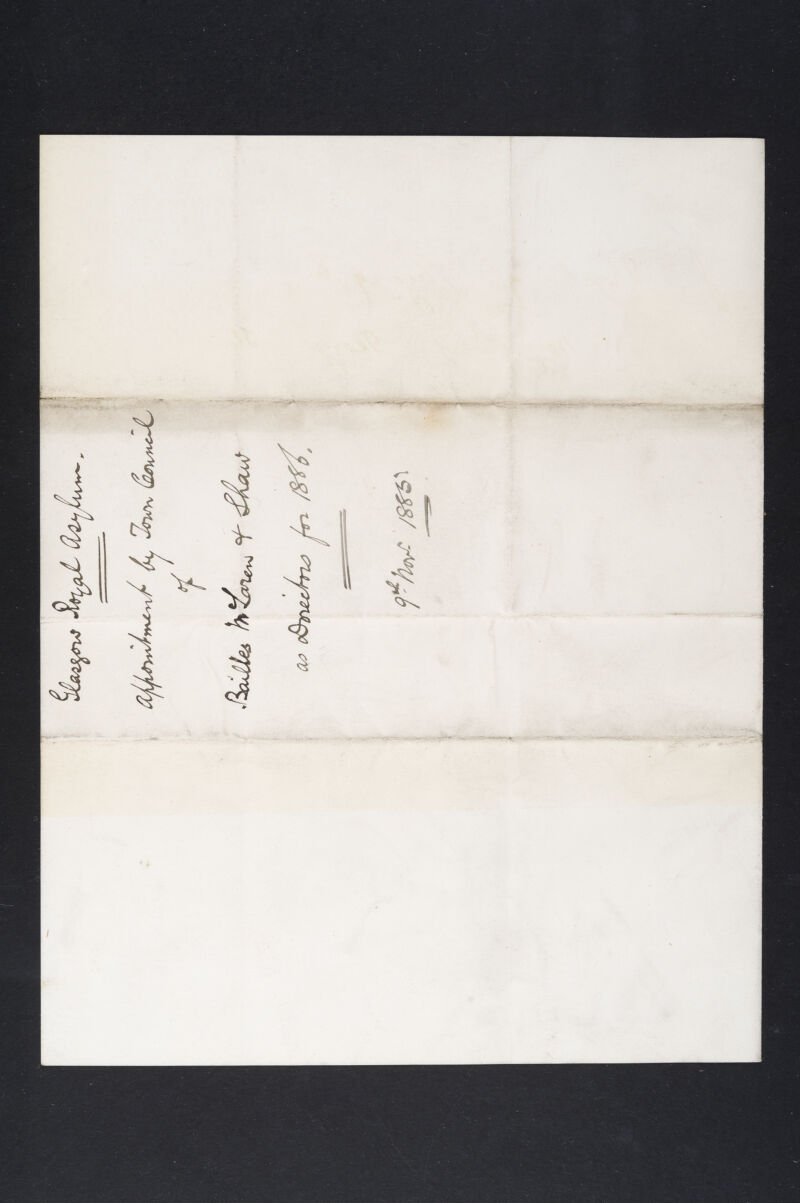 Glasgow Royal Asylum.
Appointment by Town Council
of
Bailies McLaren & Shaw
as Directors for 1886.
9th Novr 1885